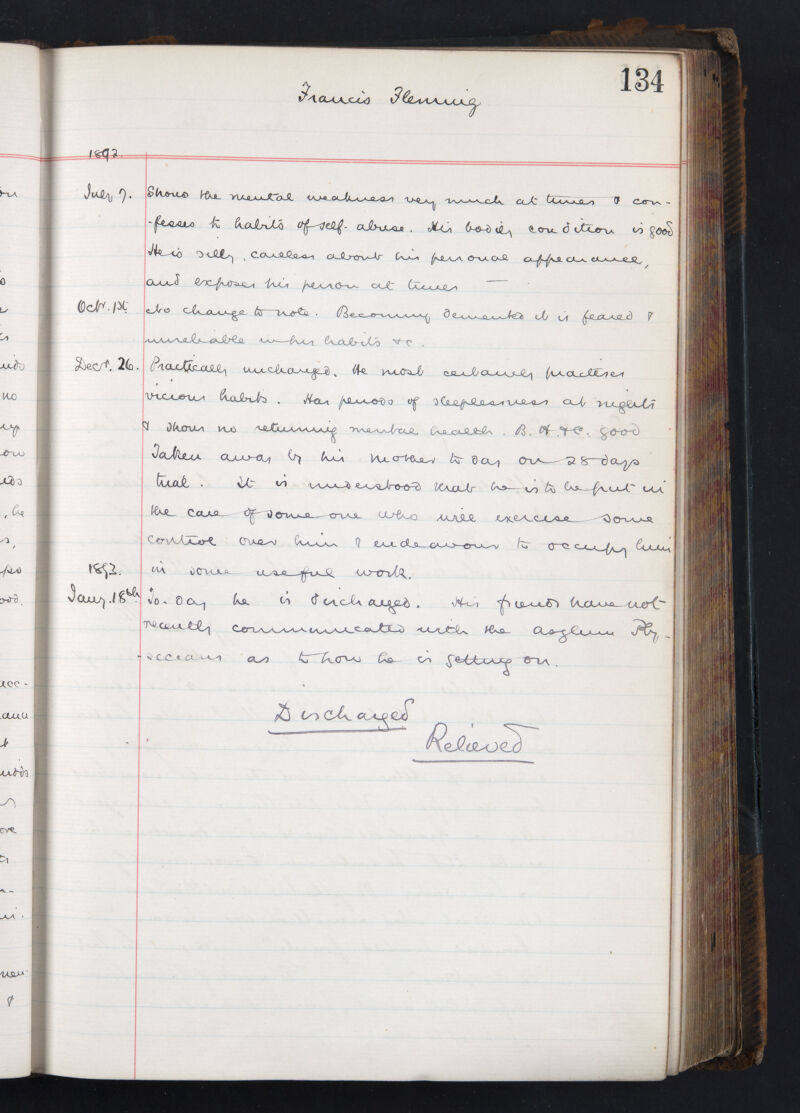 134
Francis Fleming
1892.
July 7. Shows the mental weakness very much at times & con-
-fesses to habits of self-abuse. His bodily condition is good
He is silly, careless about his personal appearance,
and exposes his person at times —
Octr. 1st. No change to note. Becoming demented it is feared &
unreliable in his habits &c.
Decr. 26. Practically unchanged. He most certainly practises
vicious habits. Has periods of sleeplessness at nights
& shows no returning mental health. B. H. &c. good
Taken away by his mother to day on 28 days
trial. It is understood that he is to be put in
the care of some one who will exercise some
control over him & endeavour to occupy him
1893. in some useful work.
Jany. 18th. To-day he is discharged. His friends have not
recently communicated with the asylum Phy-
-sicians as to how he is getting on.
Discharged
Relieved